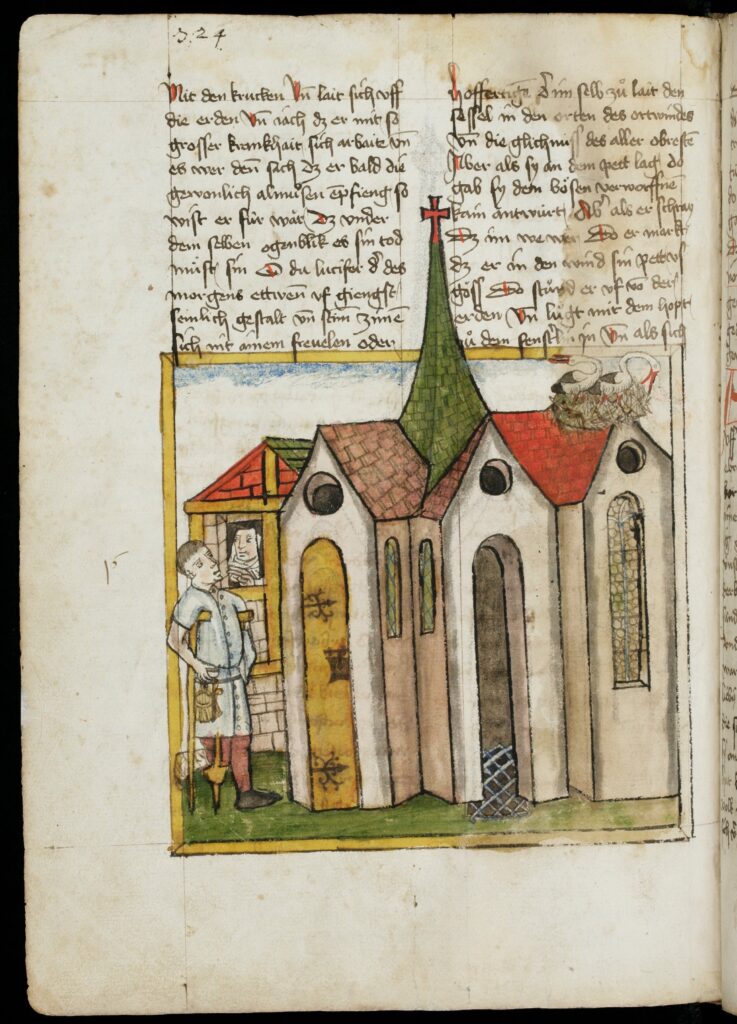 324
Mit den krucken Vn̄ lait sich vff
die erden Vn̄ iach dz er mit so
grosser krankhait sich arbaite vn̄
es wer denn sich dz er bald die
gewonlich almůsen enpfieng so
wist er für wär Dz vnder
dem selben ogenblik es sin tod
můst sin O du lucifer d' des
morgens ettwen vf giengst
semlich gestalt vn̄ stim
sich mit ainem frevelen oder
hoffertigen d' im selb zů lait den
sessel in den orten des ortwindes
Vn̄ die glichnuss des aller obresten
Aber als sy an dem pett lag do
gab sy dem bösen verworffnen
kain antwürt Ab' als er schray
Dz im we wer Do er markt
dz er in den wind sin pett vs
göss Do stůnd er vf vo der
erden Vn̄ lůgt mit dem hopt
zů dem fenster in Vn̄ als sich